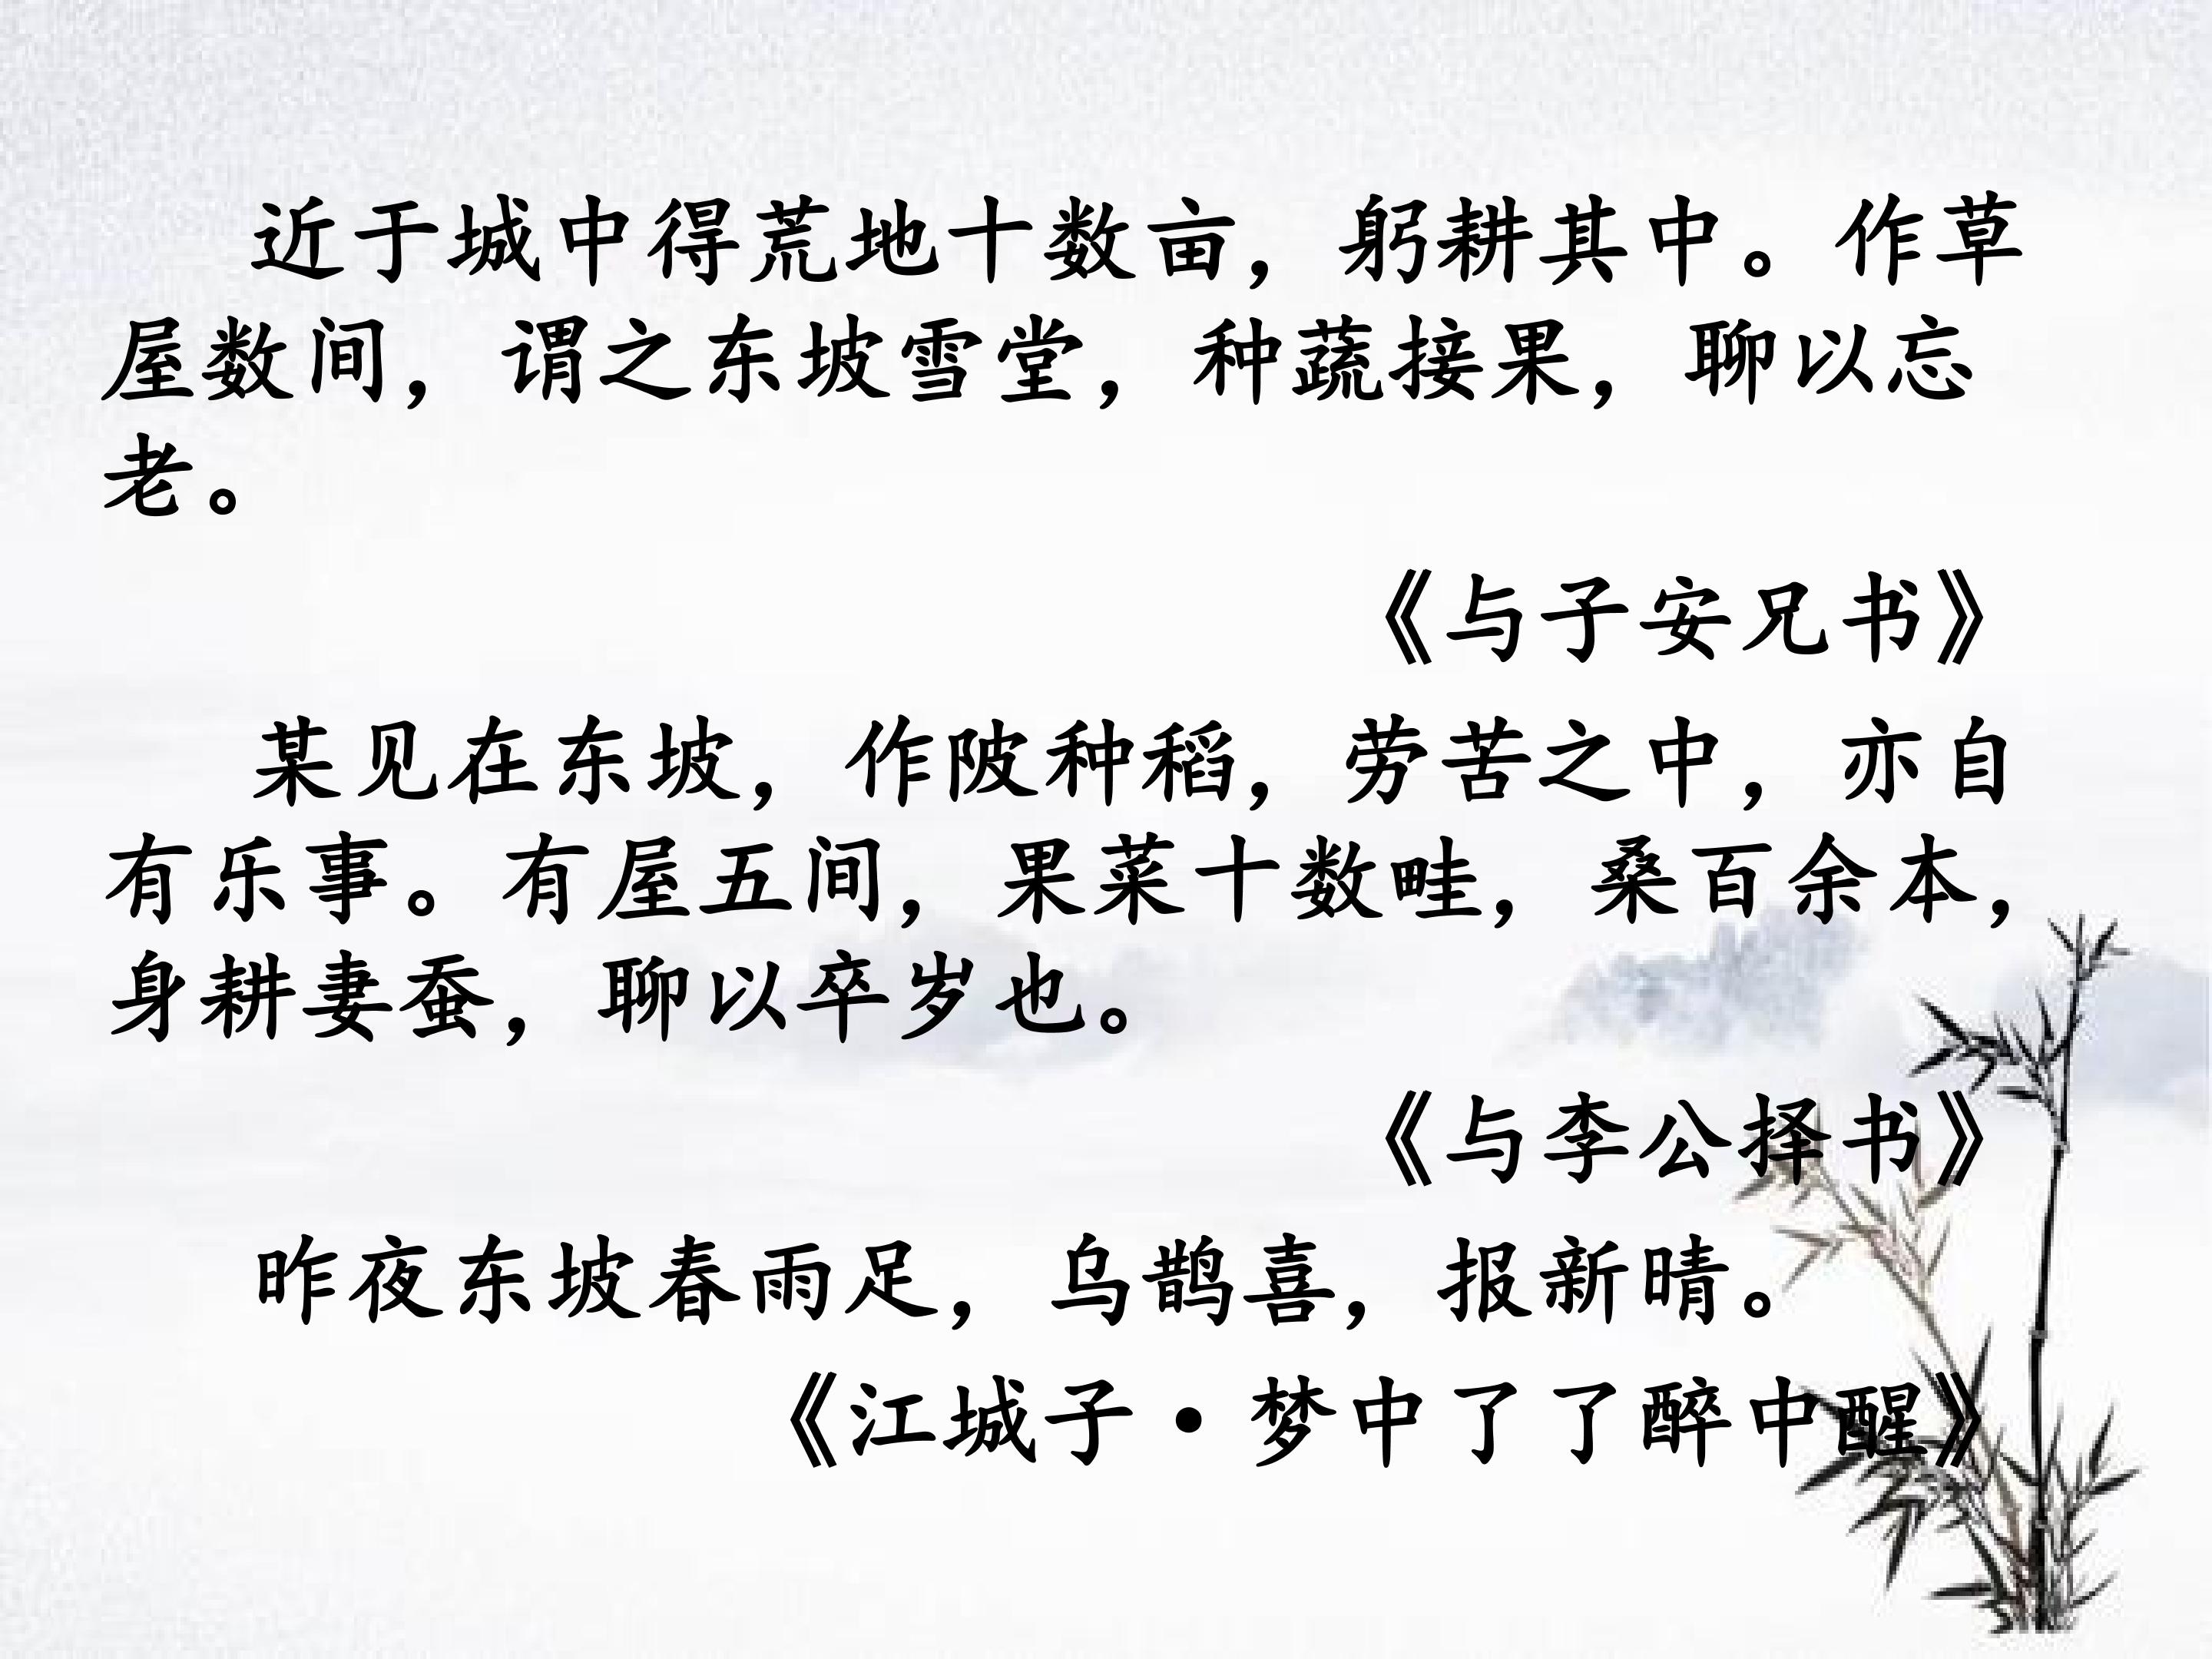 近于城中得荒地十数亩，躬耕其中。作草
屋数间，谓之东坡雪堂，种蔬接果，聊以忘
老。
《与子安兄书》
某见在东坡，作陂种稻，劳苦之中，亦自
有乐事。有屋五间，果菜十数畦，桑百余本，
身耕妻蚕，聊以卒岁也。
《与李公择书》
昨夜东坡春雨足，乌鹊喜，报新晴。
《江城子·梦中了了醉中醒》